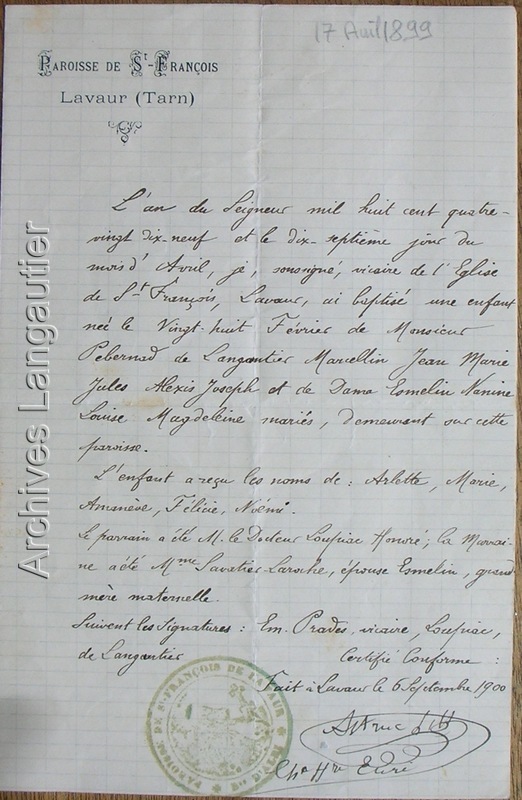 17 Avril 1899
PAROISSE DE St-FRANÇOIS
Lavaur (Tarn)
L'an du Seigneur mil huit cent quatre-
vingt dix-neuf et le dix-septième jour du
mois d'Avril, je, soussigné, vicaire de l'Eglise
de St François, Lavaur, ai baptisé une enfant
née le Vingt-huit Février de Monsieur
Pebernad de Langautier Marcellin Jean Marie
Jules Alexis Joseph et de Dame Esmelin Nanine
Louise Magdeleine mariés, demeurant sur cette
paroisse.
L'enfant a reçu les noms de : Arlette, Marie,
Félicie, Noémi.
Le parrain a été M. le Docteur Loupiac Honoré; la Marrai-
ne a été Mme Savatier Laroche, épouse Esmelin, grand
mère maternelle.
Suivent les Signatures : Em. Prades, vicaire, Loupiac,
de Langautier
Certifié Conforme :
Fait à Lavaur le 6 Septembre 1900
PAROISSE DE St-FRANÇOIS DE LAVAUR
Archives Langautier